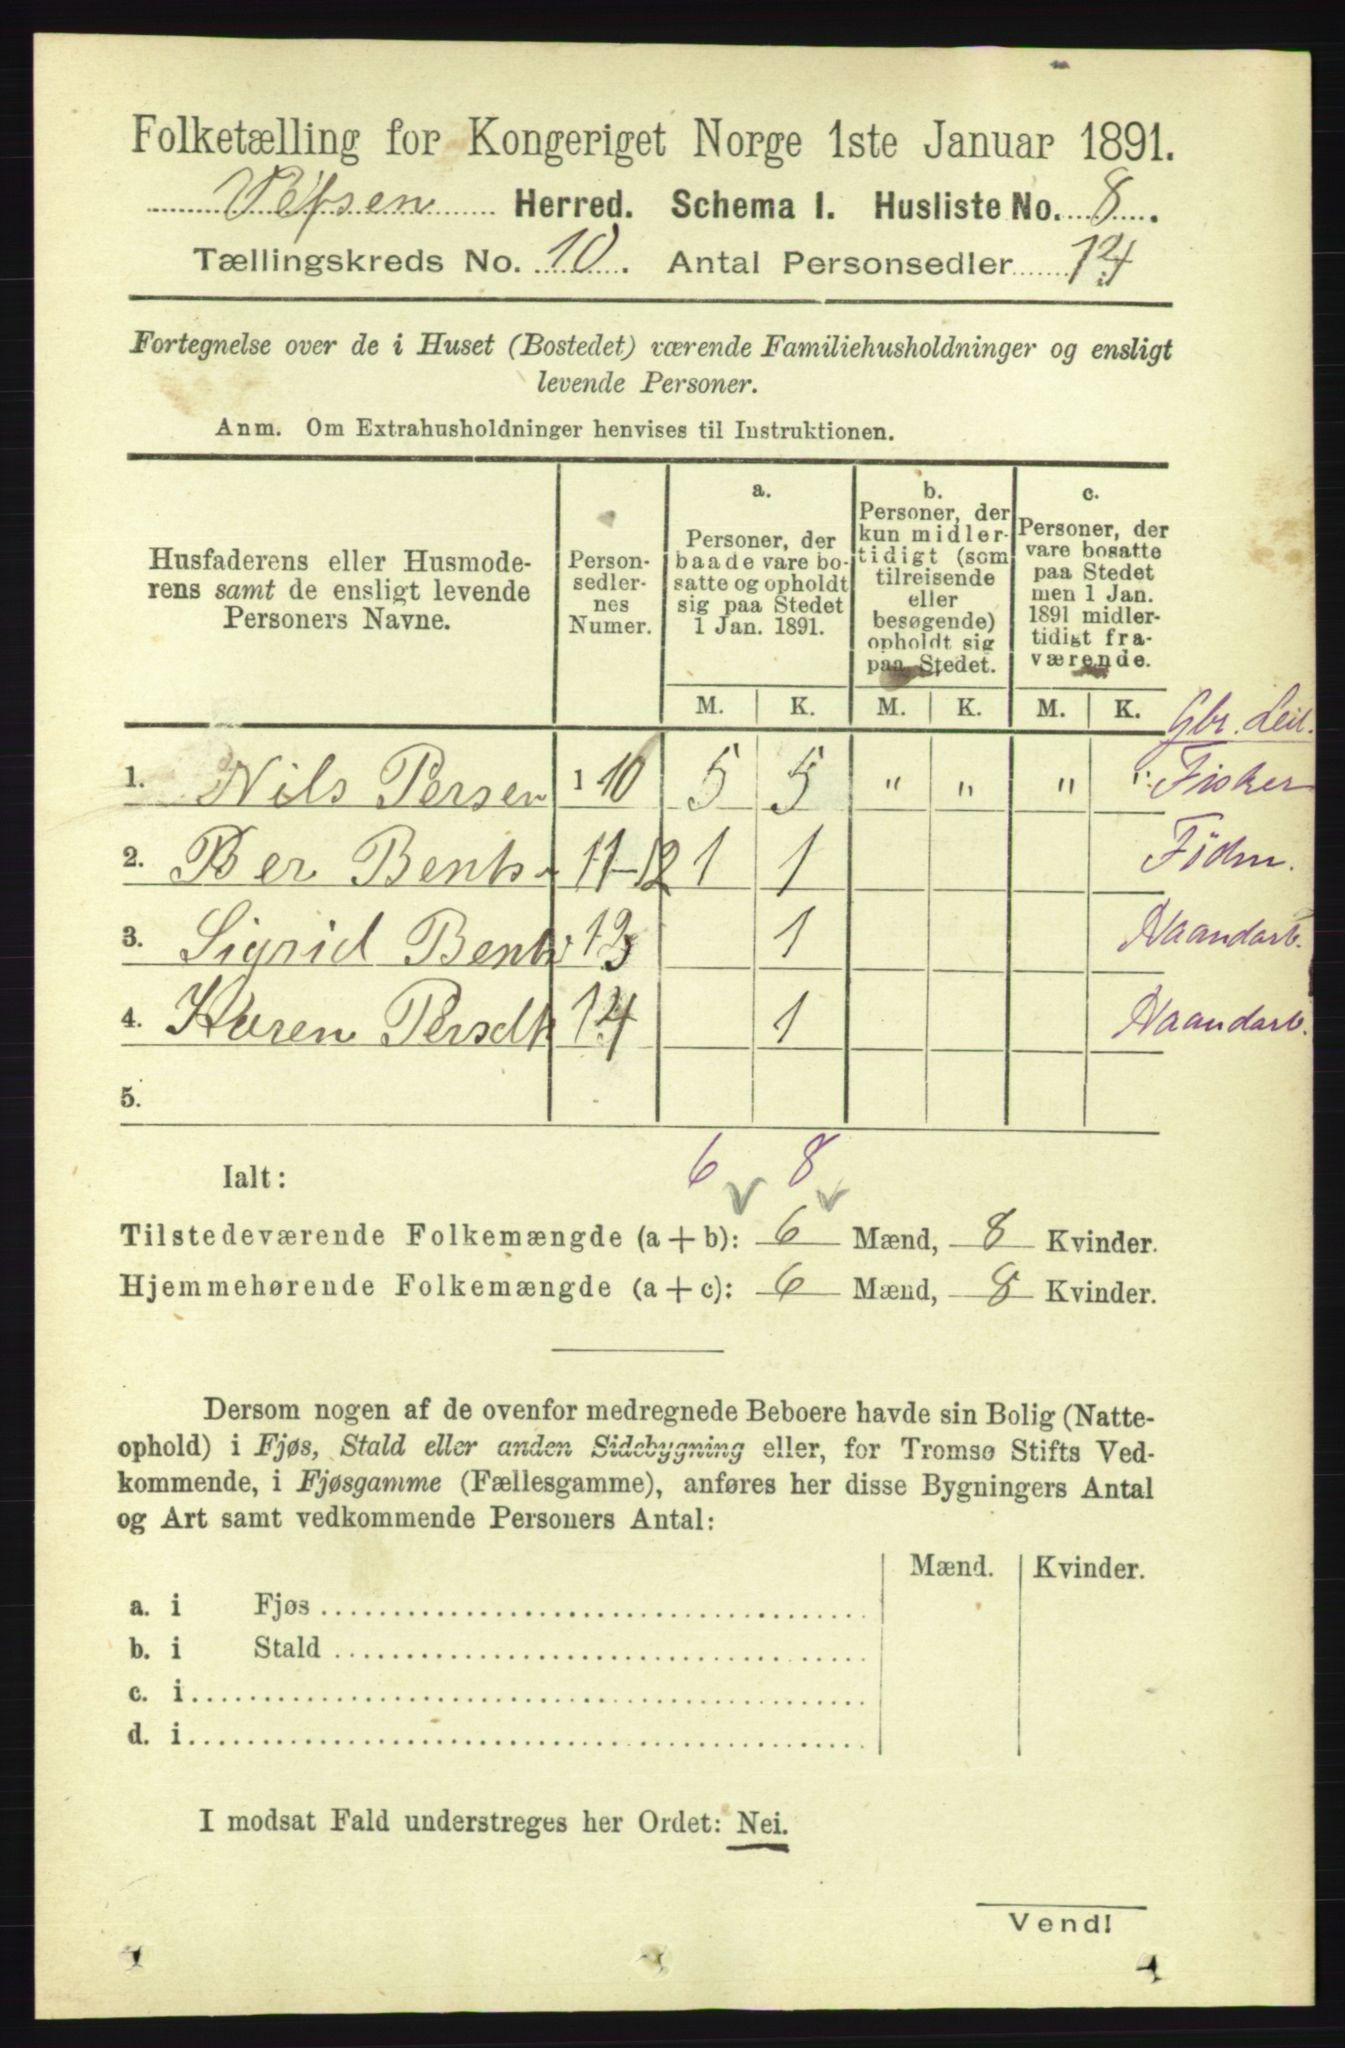 Folketælling for Kongeriget Norge 1ste Januar 1891.
Vefsen Herred. Schema I. Husliste No. 8.
Tællingskreds No. 10. Antal Personsedler 14
Fortegnelse over de i Huset (Bostedet) værende Familiehusholdninger og ensligt
levende Personer.
Anm. Om Extrahusholdninger henvises til Instruktionen.
Husfaderens eller Husmode-
rens samt de ensligt levende
Personers Navne.
Person-
sedler-
nes
Numer.
a.
Personer, der
baade vare bo-
satte og opholdt
sig paa Stedet
1 Jan. 1891.
b.
Personer, der
kun midler-
tidigt (som
tilreisende
eller
besøgende)
opholdt sig
paa Stedet.
c.
Personer, der
vare bosatte
paa Stedet
men 1 Jan.
1891 midler-
tidigt fra-
værende.
M. K. M. K. M. K.
Gbr. Leil.
1. Nils Persen 1 10 5 5 " " " " Fisker
2. Per Bents 11-12 1 1 Födm.
3. Sigrid Bents 13 1 Haandarb.
4. Karen Persdt 14 1 Haandarb.
5.
Ialt: 6 8
Tilstedeværende Folkemængde (a + b): 6 Mænd, 8 Kvinder.
Hjemmehørende Folkemængde (a + c): 6 Mænd, 8 Kvinder.
Dersom nogen af de ovenfor medregnede Beboere havde sin Bolig (Natte-
ophold) i Fjøs, Stald eller anden Sidebygning eller, for Tromsø Stifts Ved-
kommende, i Fjøsgamme (Fællesgamme), anføres her disse Bygningers Antal
og Art samt vedkommende Personers Antal:
Mænd. Kvinder.
a. i Fjøs
b. i Stald
c. i
d. i
I modsat Fald understreges her Ordet: Nei.
Vend!